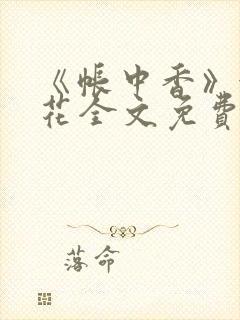 《帐中香》
花全文免費
落命